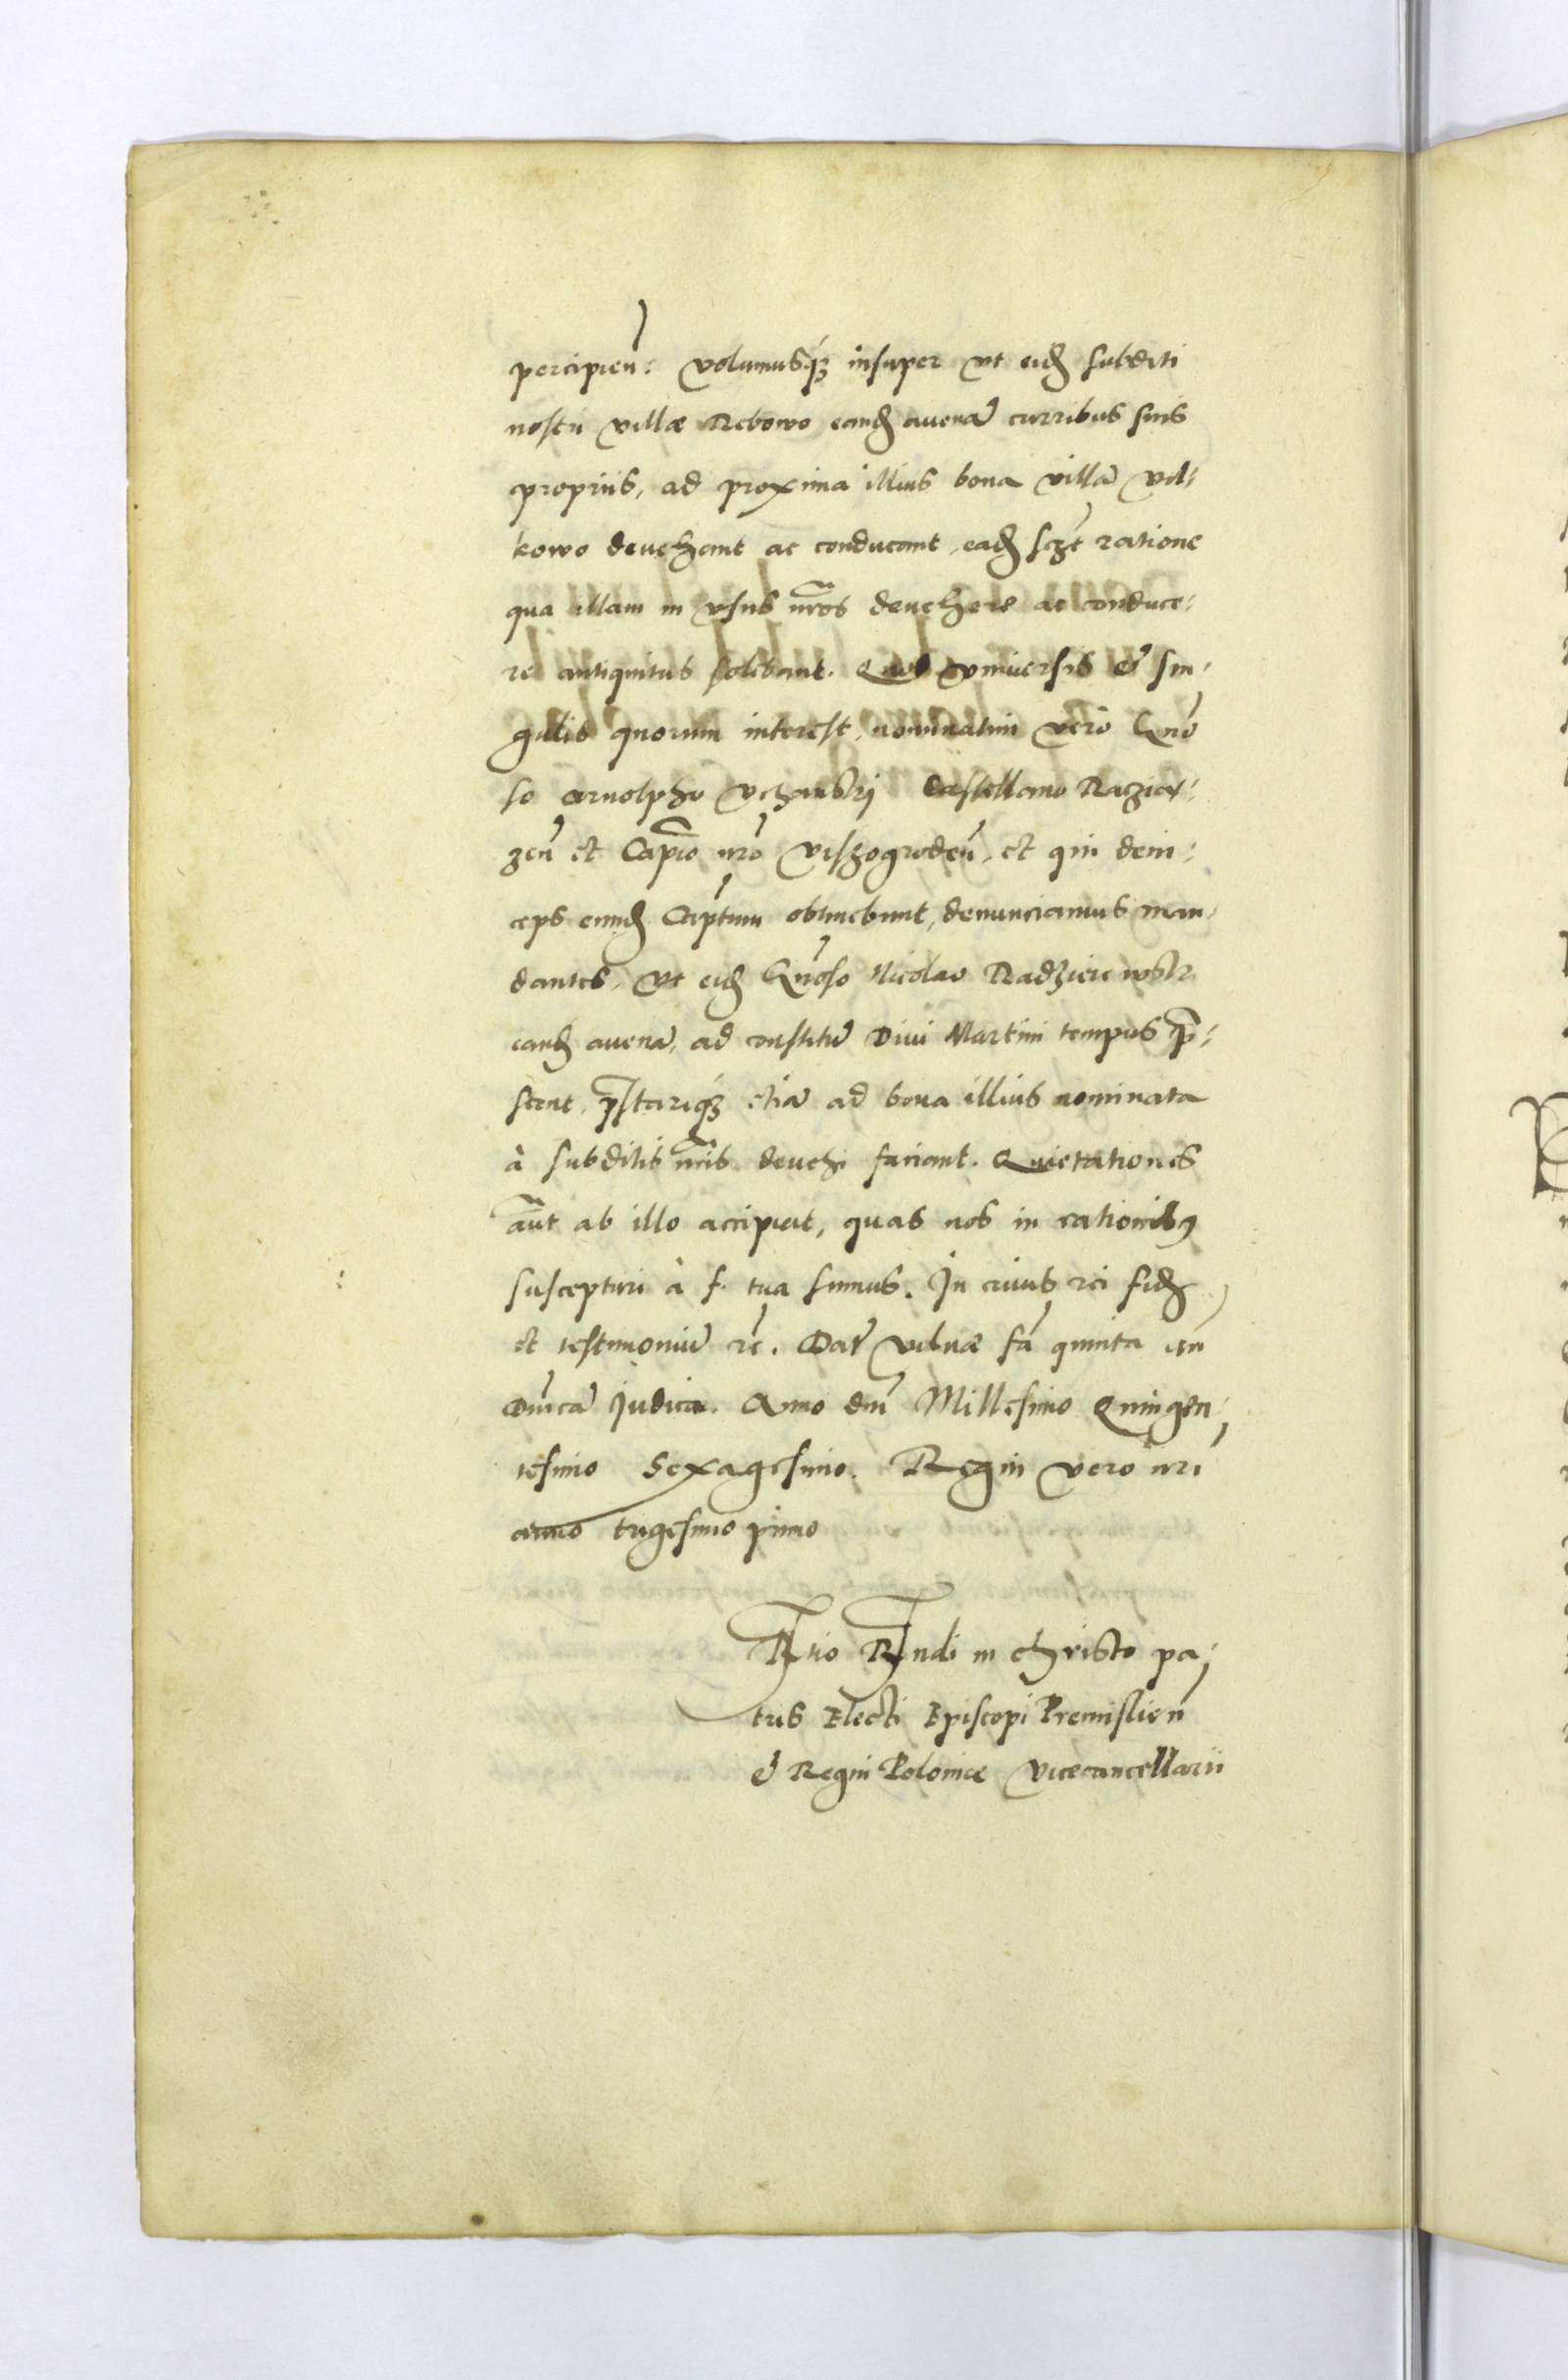 percipien̄: volumusq́ꝫ insuper vt eidẽ subditi
nostri villæ Rebowo eandẽ auenā curribus suis
proprijs, ad proxima illius bona villā Vil⸗
kowo deuehant ac conducant, eadẽ sczt ratione
qua illam in vsus nr̃os deuehere ac conduce⸗
re antiquitus solebant. Quod vniuersis & sin⸗
gulis quorum interest, nominatim vero Gn̄o
so Arnolpho Vchanskij Castellano Racziąr⸗
zen̄ et Capn̄eo nr̄o Viszogroden̄, et qui dein⸗
ceps eundẽ Cap̄tum obtinebunt, denunciamus man⸗
dantes, vt eidẽ Gn̄oso Nicolao Radzieiewski
eandẽ auenā, ad constitū Diui Martini tempus p̄⸗
stent, p̄stariq́ꝫ etiā ad bona illius nominata
à subditis nr̄is deuehi faciant. Quietationes
aūt ab illo accipiat, quas nos in rationibꝰ
suscepturi à f. tua sumus. In cuius rei fidẽ
et testimoniū rc̄. Dat̄ Vilnæ fā quinta an̄
Dn̄icā Judica. Anno dn̄i Millesimo Quingen⸗
tesimo Sexagesimo. Regni vero nr̄i
anno trigesimo primo
Rtio Rndi in christo pa⸗
tris Electi Episcopi Premislien̄
& Regni Poloniæ Vicecancellarii